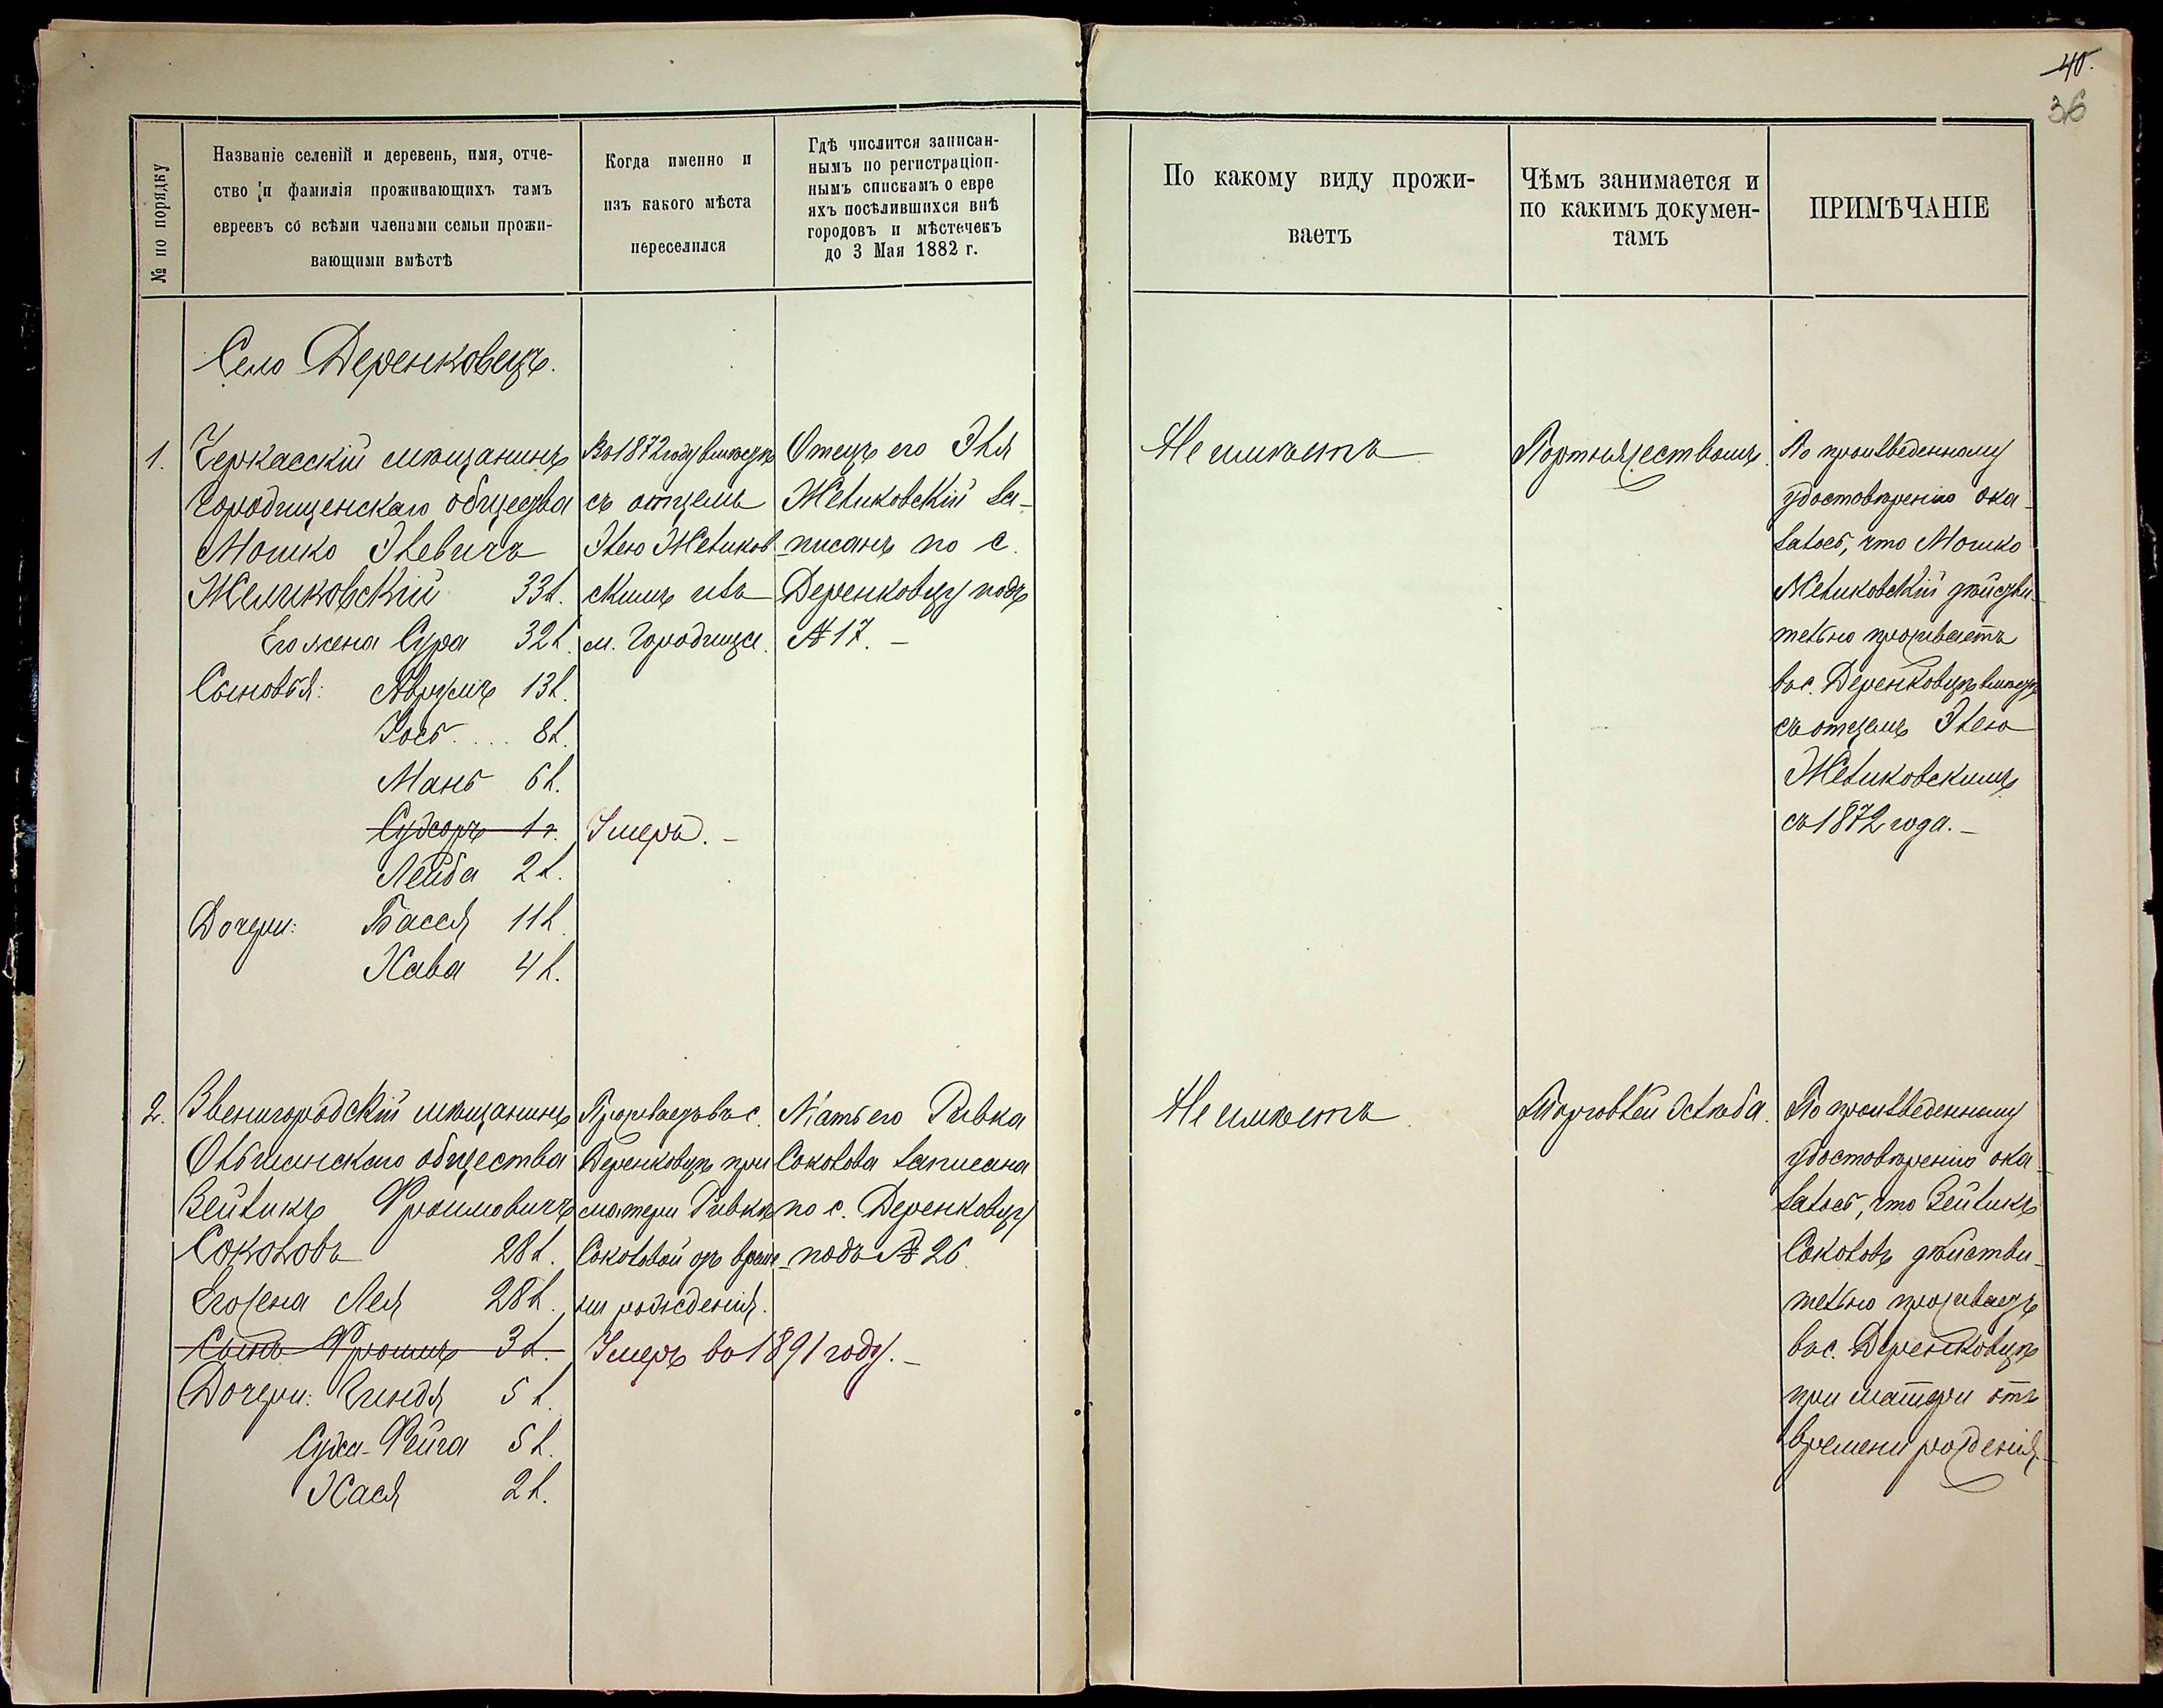 40.
36
№ по порядку
Названіе селеній и деревень, имя, отче-
ство и фамилія проживающихъ тамъ
евреевъ со всѣми членами семьи прожи-
вающими вмѣстѣ
Когда именно и
изъ какого мѣста
переселился
Гдѣ числится записан-
нымъ по регистраціон-
нымъ спискамъ о евре
яхъ поселившихся внѣ
городовъ и мѣстечекъ
до 3 Мая 1882 г.
По какому виду прожи-
ваетъ
Чѣмъ занимается и
по какимъ докумен-
тамъ
ПРИМѢЧАНІЕ
Село Деренковецъ.
1.
Черкасскій мѣщанинъ
Городищенскаго общества
Мошко Элевичъ
Желиковскій 33 л.
Его жена Сура 32 л.
Сыновья: Аврумъ 13 л.
Іось .... 8 л.
Мань 6 л.
1 г.
Лейба 2 л.
Дочери: Басся 11 л.
Хава 4 л.
Въ 1872 году вмѣстѣ
съ отцемъ
Элею Желиков
скимъ изъ
м. Городища.
Умеръ. –
Отецъ его Эля
Желиковскій за-
писанъ по с.
Деренковцу подъ
№ 17. –
Не имѣетъ
Портняжествомъ.
По произведенному
удостовѣренію ока-
залось, что Мошко
Желиковскій дѣйстви-
тельно проживаетъ
въ с. Деренковцѣ вмѣстѣ
съ отцемъ Элею
Желиковскимъ
съ 1872 года. –
2.
Звенигородскій мѣщанинъ
Ольшанскаго общества
Зейликъ Фроимовичъ
Соколовъ 28 л.
Его жена Лея 28 л.
Сынъ Фроимъ 3 л.
Дочери: Гиндя 5 л.
Сура-Фейга 5 л.
Хася 2 л.
Проживаетъ въ с.
Деренковцѣ при
матери Ривкѣ
Соколовой отъ време-
ни рожденія.
Умеръ въ 1891 году. –
Мать его Ривка
Соколова записана
по с. Деренковцу
подъ № 26
Не имѣетъ.
Торговлей хлѣба.
По произведенному
удостовѣренію ока-
залось, что Зейликъ
Соколовъ дѣйстви-
тельно проживаетъ
въ с. Деренковцѣ
при матери отъ
времени рожденія. –